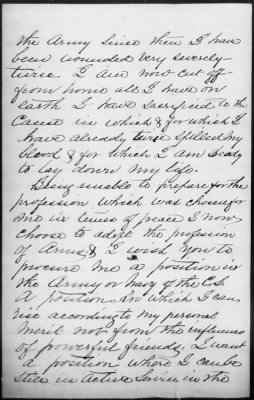 the Army since then I have
been wounded very severely-
twice I am now cut off
from home all I have on
earth I have sacrificed to the
Cause in which & for which I
have already twice spilled my
blood & for which I am ready
to lay down my life.
Being unable to prepare for the
profession which was chosen for
me in times of peace I now
choose to adopt the profession
of Arms, & I wish you to
procure me a position in
the Army or Navy of the C.S.
A position in which I can
rise according to my personal
Merit not from the influence
of powerful friends, I want
a position where I can be
still in active service in the